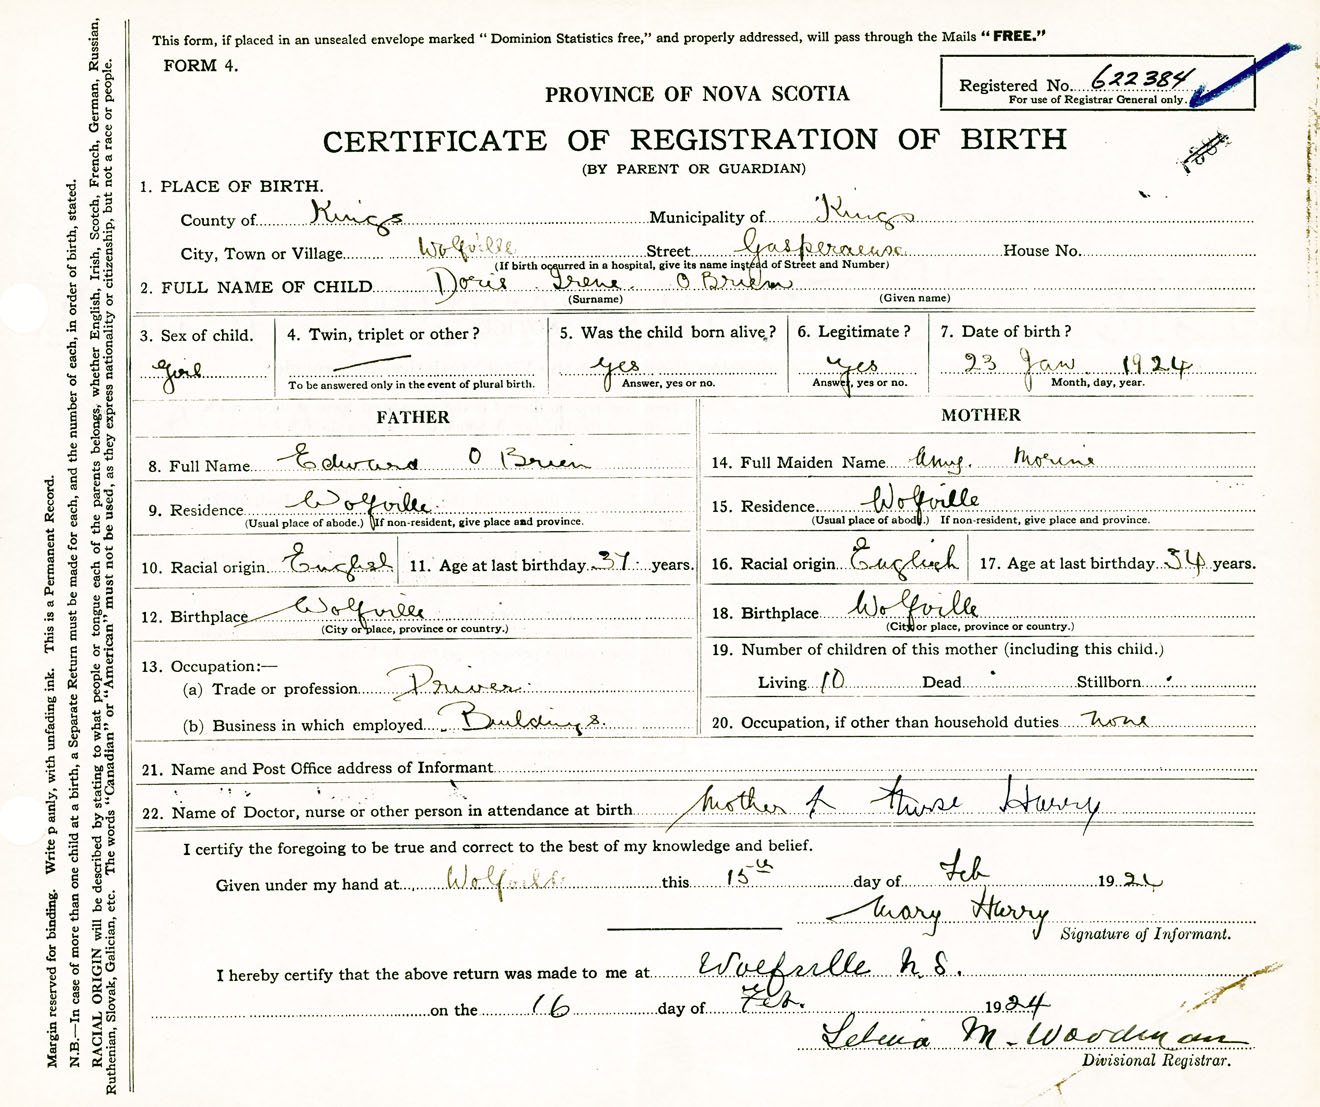 This form, if placed in an unsealed envelope marked “ Dominion Statistics free,” and properly addressed, will pass through the Mails “ FREE.”
FORM 4.
Registered No. 622384
For use of Registrar General only.
PROVINCE OF NOVA SCOTIA
CERTIFICATE OF REGISTRATION OF BIRTH
(BY PARENT OR GUARDIAN)
1. PLACE OF BIRTH.
County of Kings Municipality of Kings
City, Town or Village Wolfville Street Gaspereause House No.
(If birth occurred in a hospital, give its name instead of Street and Number)
2. FULL NAME OF CHILD Doris Irene O Brien
(Surname) (Given name)
3. Sex of child. 4. Twin, triplet or other ? 5. Was the child born alive ? 6. Legitimate ? 7. Date of birth ?
Girl — yes yes 23 Jan 1924
To be answered only in the event of plural birth. Answer, yes or no. Answer, yes or no. Month, day, year.
FATHER MOTHER
8. Full Name Edward O Brien 14. Full Maiden Name Amy. Morine
9. Residence Wolfville 15. Residence Wolfville
(Usual place of abode.) If non-resident, give place and province. (Usual place of abode.) If non-resident, give place and province.
10. Racial origin English 11. Age at last birthday 37 years. 16. Racial origin English 17. Age at last birthday 34 years.
12. Birthplace Wolfville 18. Birthplace Wolfville
(City or place, province or country.) (City or place, province or country.)
13. Occupation:— 19. Number of children of this mother (including this child.)
(a) Trade or profession Driver Living 10 Dead Stillborn
(b) Business in which employed Buildings. 20. Occupation, if other than household duties none
21. Name and Post Office address of Informant
22. Name of Doctor, nurse or other person in attendance at birth Mother & Nurse Harry
I certify the foregoing to be true and correct to the best of my knowledge and belief.
Given under my hand at Wolfville this 15th day of Feb 1924
Mary Harry
Signature of Informant.
I hereby certify that the above return was made to me at Wolfville N. S.
on the 16 day of Feb. 1924
M. Woodman
Divisional Registrar.
Margin reserved for binding. Write p ainly, with unfading ink. This is a Permanent Record.
N.B.—In case of more than one child at a birth, a Separate Return must be made for each, and the number of each, in order of birth, stated.
RACIAL ORIGIN will be described by stating to what people or tongue each of the parents belongs, whether English, Irish, Scotch, French, German, Russian,
Ruthenian, Slovak, Galician, etc. The words “Canadian” or “American” must not be used, as they express nationality or citizenship, but not a race or people.